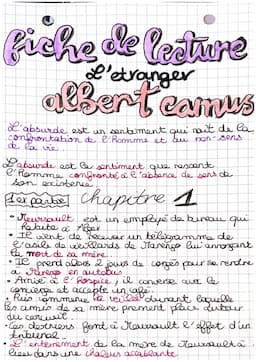 fiche de lecture
L'étranger
albert camus
L'absurde est un sentiment qui naît de la
confrontation de l'Homme et au non-sens
de la vie
L'absurde est le sentiment que ressent
l'Homme confronté à l'absence de sens de
son existence
1er partie Chapitre 1
• Meursault est un employé de bureau qui
habite à Alger
• Il vient de recevoir un télégramme de
l'asile de vieillards de Marengo lui annonçant
la mort de sa mère.
• Il prend alors 2 jours de congés pour se rendre
à Marengo en autobus
• Arrivé à l'hospice, il converse avec le
concierge et accepte un café
• Puis commence la veillée durant laquelle
les amis de sa mère prennent place autour
du cercueil.
• Ces derniers font à Meursault l'effet d'un
tribunal
• L'enterrement de la mère de Meursault à
lieu dans une chaleur accablante